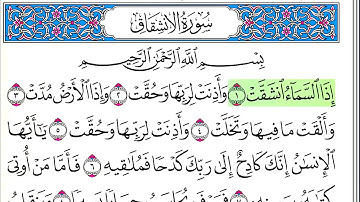 سُورَةُ الِانشِقَاقِ
بِسْمِ اللَّهِ الرَّحْمَٰنِ الرَّحِيمِ
إِذَا السَّمَاءُ انشَقَّتْ ١ وَأَذِنَتْ لِرَبِّهَا وَحُقَّتْ ٢ وَإِذَا الْأَرْضُ مُدَّتْ ٣
وَأَلْقَتْ مَا فِيهَا وَتَخَلَّتْ ٤ وَأَذِنَتْ لِرَبِّهَا وَحُقَّتْ ٥ يَا أَيُّهَا
الْإِنسَانُ إِنَّكَ كَادِحٌ إِلَىٰ رَبِّكَ كَدْحًا فَمُلَاقِيهِ ٦ فَأَمَّا مَنْ أُوتِيَ